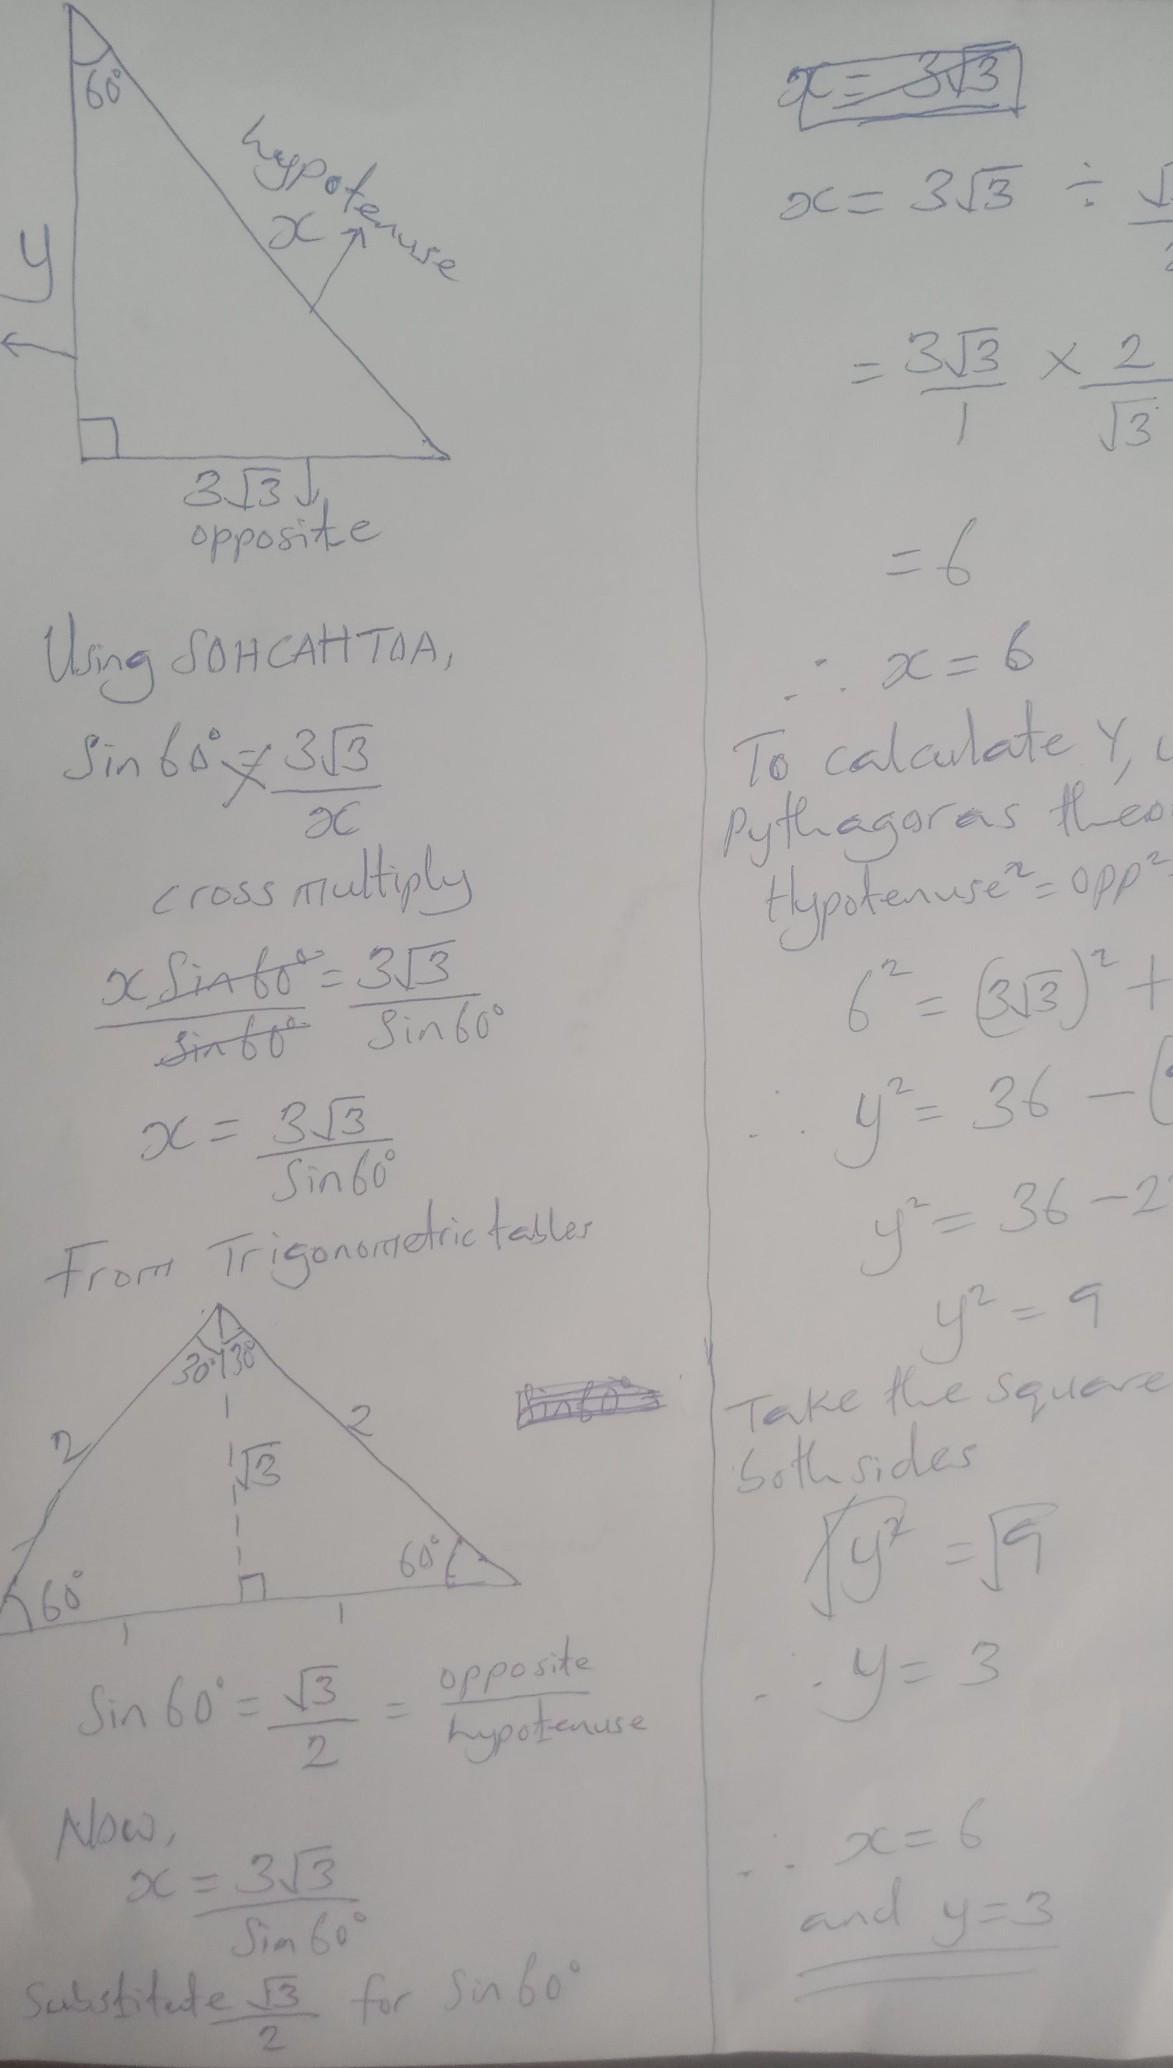 60°
hypotenuse
x
y
3√3
opposite
Using SOHCAHTOA,
Sin 60° = 3√3/x
cross multiply
x Sin 60°/Sin 60° = 3√3/Sin 60°
x = 3√3/Sin 60°
From Trigonometric tables
30° 30°
2 2
√3
60° 60°
1 1
Sin 60° = √3/2 = opposite/hypotenuse
Now,
x = 3√3/Sin 60°
Substitute √3/2 for Sin 60°
x = 3√3
x = 3√3 ÷ √
= 3√3/1 × 2/√3
= 6
∴ x = 6
To calculate Y,
Pythagoras theo
Hypotenuse² = opp²
6² = (3√3)² +
∴ y² = 36 – (
y² = 36 – 2
y² = 9
Take the square
both sides
√y² = √9
∴ y = 3
∴ x = 6
and y = 3